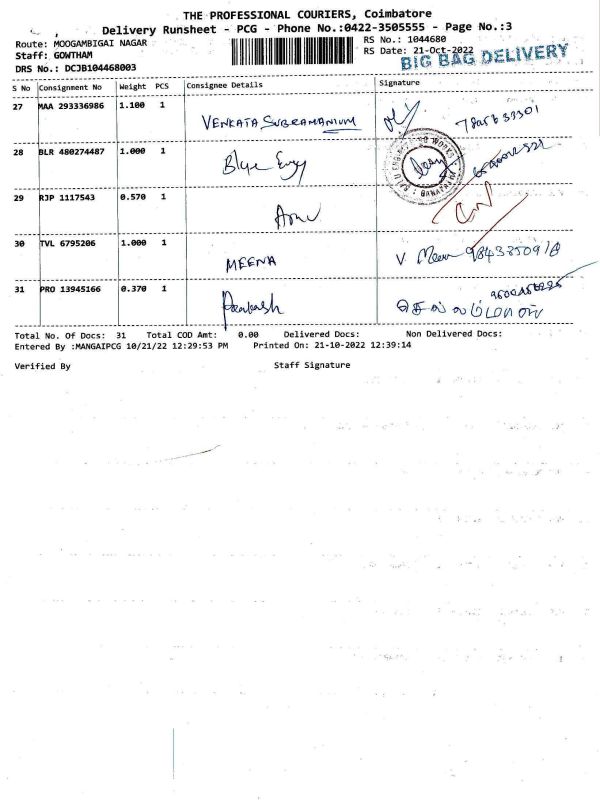 THE PROFESSIONAL COURIERS, Coimbatore
Delivery Runsheet - PCG - Phone No.:0422-3505555 - Page No.:3
Route: MOOGAMBIGAI NAGAR
RS No.: 1044680
Staff: GOWTHAM
RS Date: 21-Oct-2022
BIG BAG DELIVERY
DRS No.: DCJB104468003
S No Consignment No Weight PCS Consignee Details Signature
27 MAA 293336986 1.100 1 VENKATA SUBRAMANIUM
28 BLR 480274487 1.000 1
29 RJP 1117543 0.570 1
30 TVL 6795206 1.000 1 MEENA V Meena
31 PRO 13945166 0.370 1 Prakash
Total No. Of Docs: 31 Total COD Amt: 0.00 Delivered Docs: Non Delivered Docs:
Entered By :MANGAIPCG 10/21/22 12:29:53 PM Printed On: 21-10-2022 12:39:14
Verified By Staff Signature